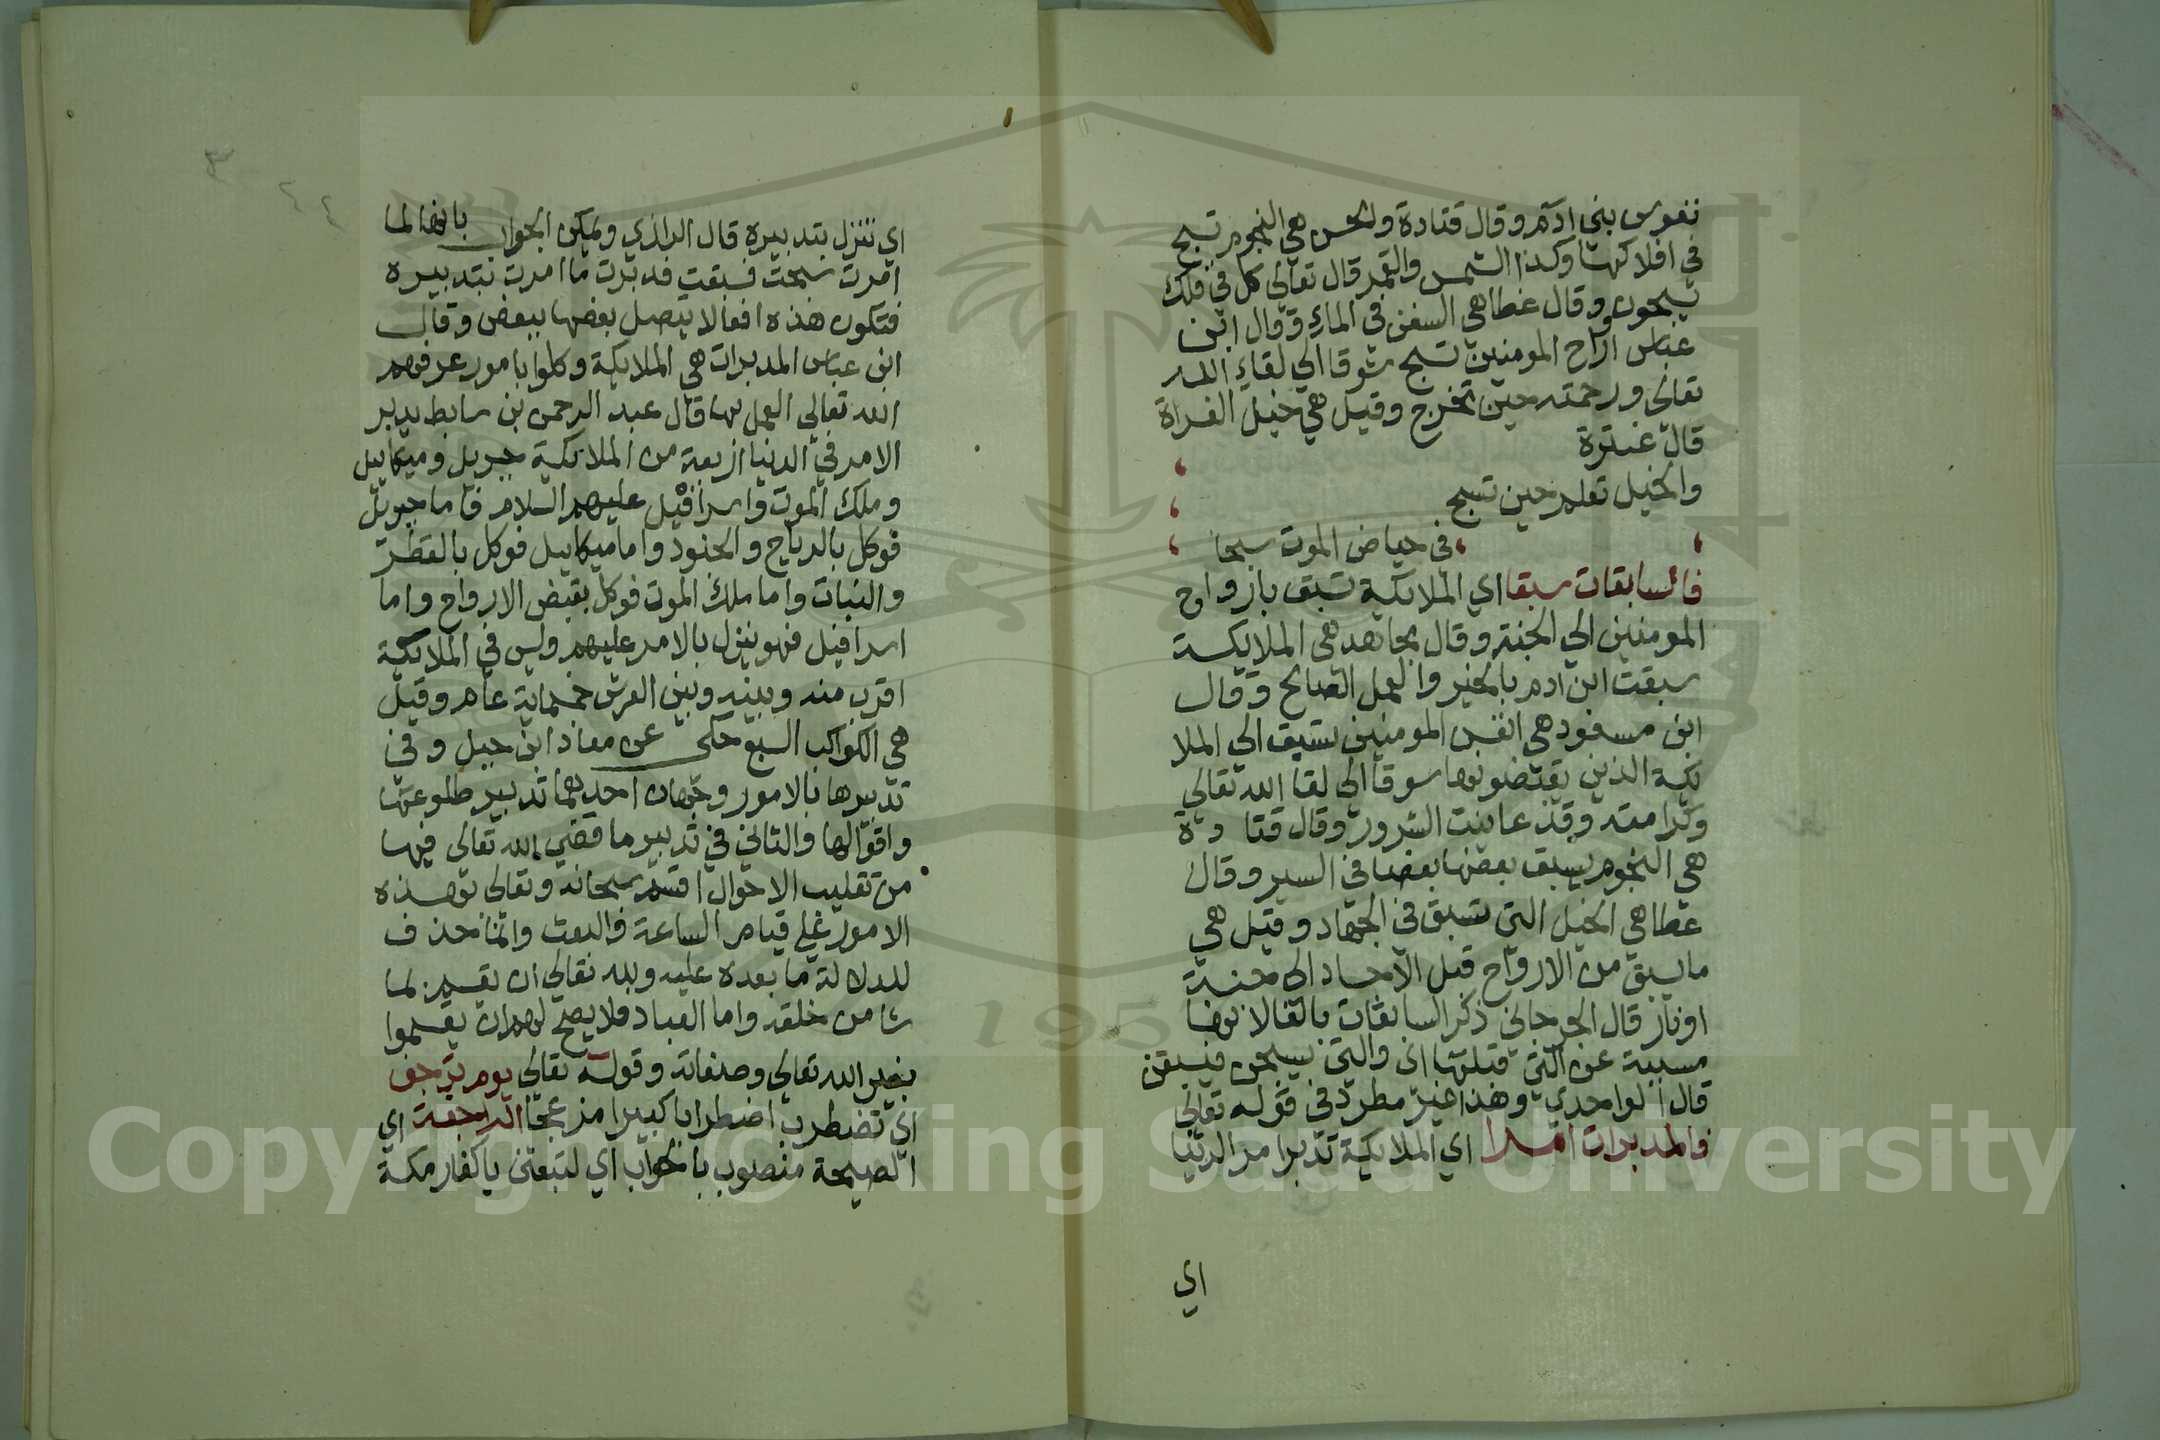 نفوس بني ادم وقال قتادة والحسن هي النجوم تسبح
في افلاكها وكذا الشمس والقمر قال تعالى كل في فلك
يسبحون وقال عطا هي السفن في الماء وقال ابن
عباس ارواح المومنين تسبح شوقا الي لقاء الله
تعالى ورحمته حين تخرج وقيل هي خيل الغزاة
قال عنترة
والخيل تعلم حين تسبح
في حياض الموت سبحا
فالسابقات سبقا اي الملايكة تسبق بارواح
المومنين الي الجنة وقال مجاهد هي الملايكة
سبقت ابن ادم بالخير والعمل الصالح وقال
ابن مسعود هي انفس المومنين تسبق الي الملا
يكة الذين يقبضونها سوقا الي لقا الله تعالي
وكرامته وقد عاينت السرور وقال قتا دة
هي النجوم يسبق بعضها بعضا في السير وقال
عطا هي الخيل التي تسبق في الجهاد وقيل هي
ما يسبق من الارواح قبل الاجساد الى جنة
او نار قال الجرجاني ذكر السابقات بالفا لانها
مسببة عن التي قبلها اي والتي يسبحن فيسبقن
قال الواحدي وهذا غير مطرد في قوله تعالى
فالمدبرات امرا اي الملايكة تدبر امر الدنيا
اي
اي تنزل بتدبيره قال الرازي ويمكن الجواب بانها لما
امرت سبحت فسبقت فدبرت ما امرت بتدبيره
فتكون هذه افعالا يتصل بعضها ببعض وقال
ابن عباس المدبرات هي الملايكة وكلوا بامور عرفهم
الله تعالى العمل بها قال عبد الرحمن بن سابط يدبر
الامر في الدنيا اربعة من الملايكة جبريل وميكاييل
وملك الموت واسرافيل عليهم السلام فاما جبريل
فوكل بالرياح والجنود واما ميكاييل فوكل بالقطر
والنبات واما ملك الموت فوكل بقبض الارواح واما
اسرافيل فهو ينزل بالامر عليهم وليس في الملايكة
اقرب منه وبينه وبين العرش خمسماية عام وقيل
هي الكواكب السبع حكى عن معاذ ابن جبل وفي
تدبيرها بالامور وجهان احدهما تدبير طلوعها
وافوالها والثاني في تدبير ما قضى الله تعالى فيها
من تقليب الاحوال اقسم سبحانه وتعالى بهذه
الامور على قيام الساعة والبعث وانما حذف
للدلالة ما بعده عليه ولله تعالى ان يقسم بما
شا من خلقه واما العباد فلا يصح لهم ان يقسموا
بغير الله تعالى وصفاته وقوله تعالى يوم ترجف
اي تضطرب اضطرابا كبيرا مزعجا الراجفة اي
الصيحة منصوب بالجواب اي لتبعثن يا كفار مكة